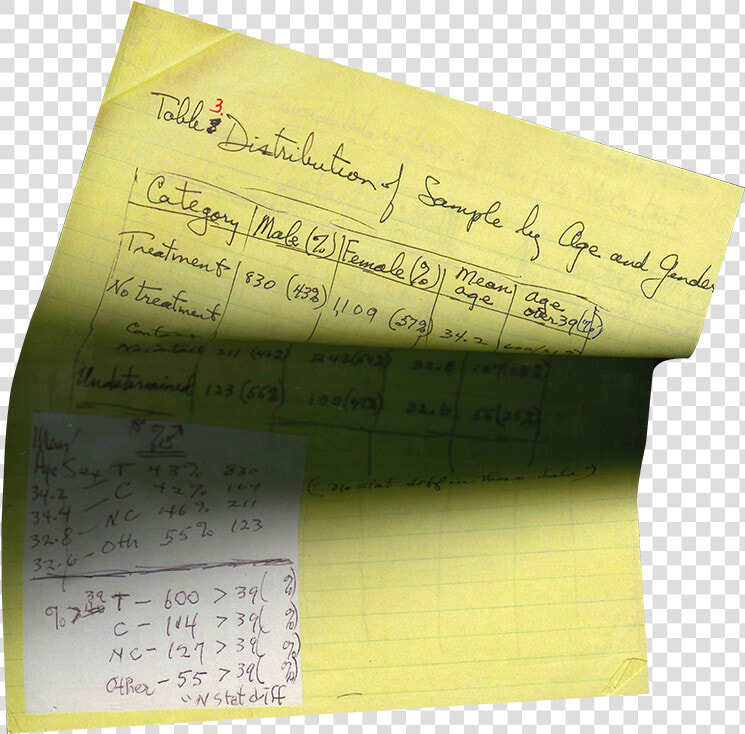 Table 3. Distribution of Sample by Age and Gender
Category Male (%) Female (%) Mean age Age over 39 (%)
Treatment 830 (43%) 1,109 (57%) 34.2
No treatment
No Contact 211 (46%) 243 (54%) 32.8
Undetermined 123 (55%) 100 (45%) 32.6 55 (25%)
(No stat diff in these data)
Mean
Age Sex T 43% 830
34.2 — C 42%
34.4 — NC 46% 211
32.8 — Oth 55% 123
32.6
% > 39 T — 600 > 39 ( %)
C — 114 > 39 ( %)
NC — 127 > 39 ( %)
Other — 55 > 39 ( %)
N stat diff